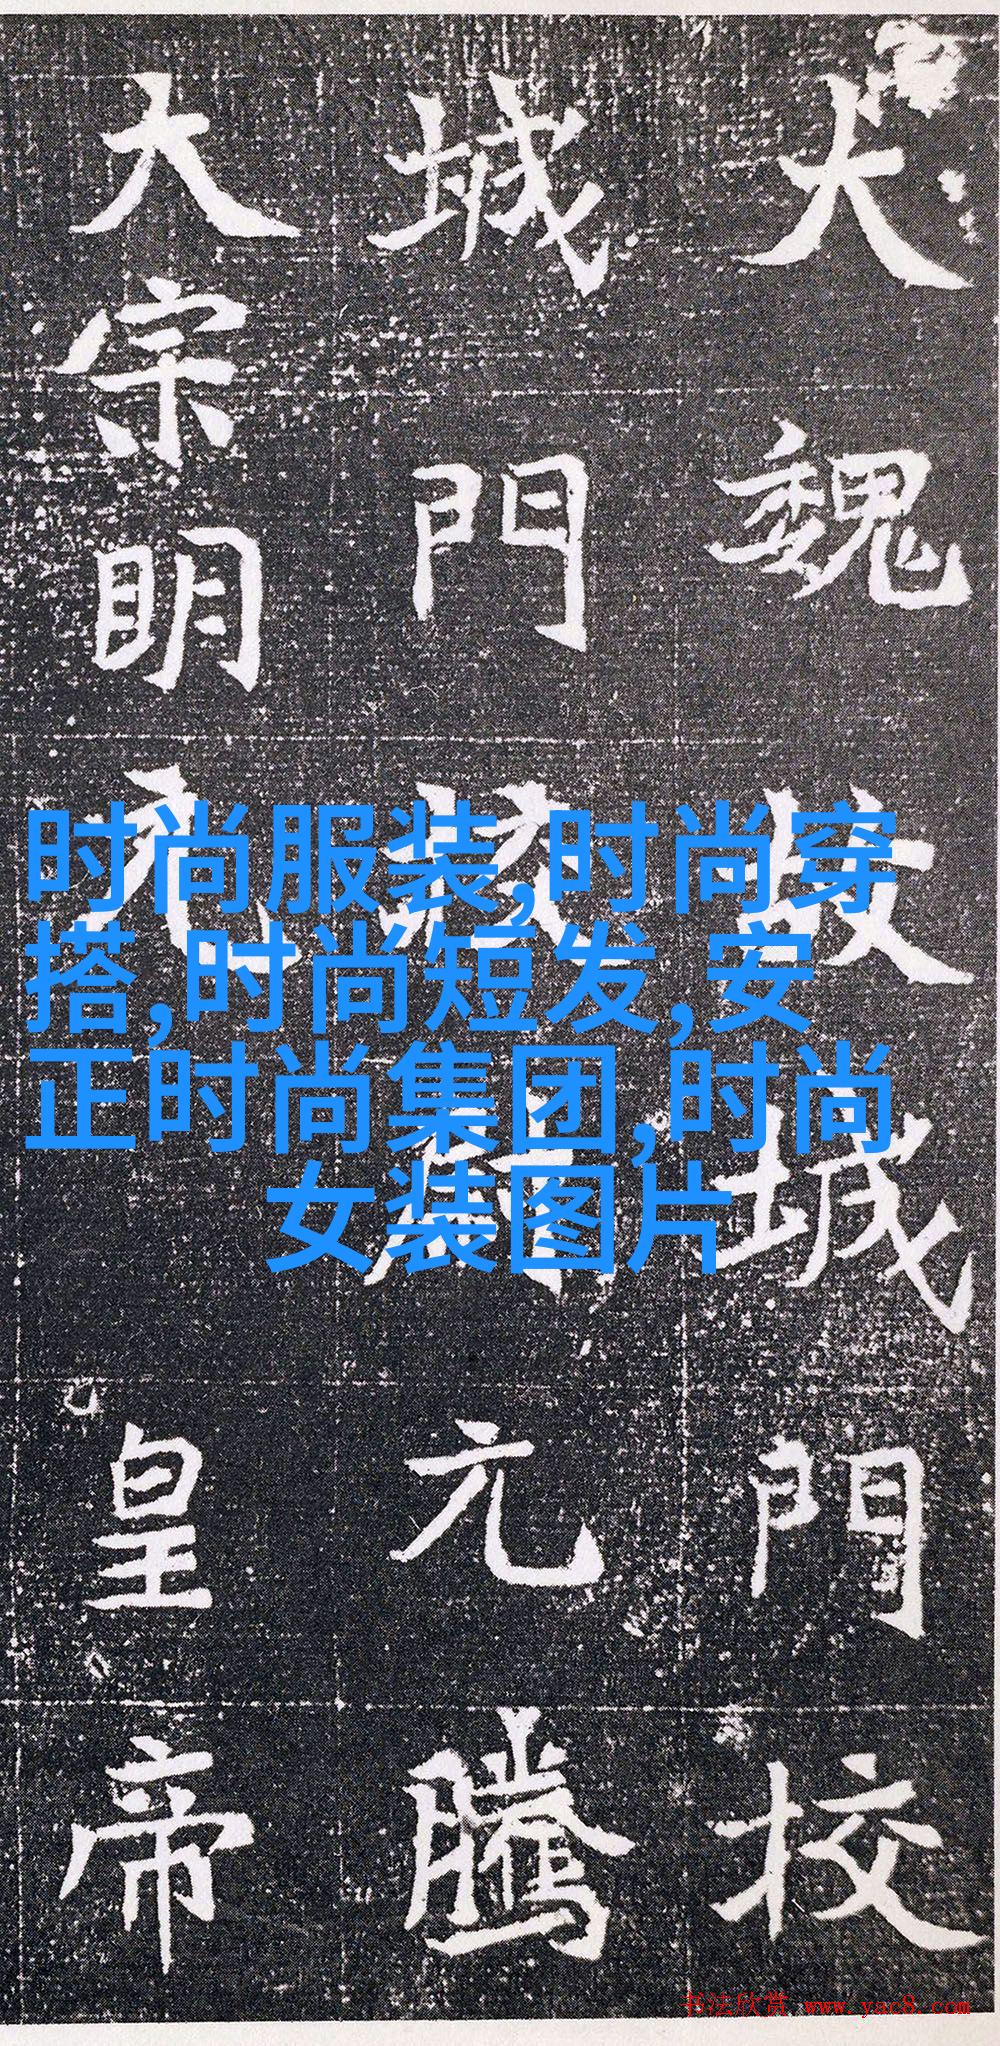 大魏故城門校
城門校尉元騰
大宗明元皇帝
时尚服装,时尚穿
搭,时尚短发,安
正时尚集团,时尚
女装图片
书法欣赏 www.yac8.com